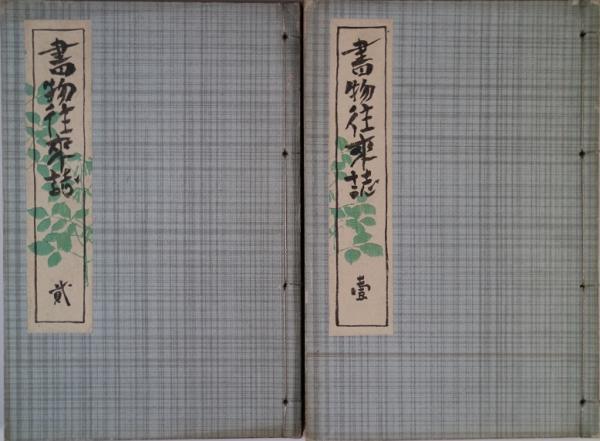 書物往来誌
壹
書物往来誌
貳